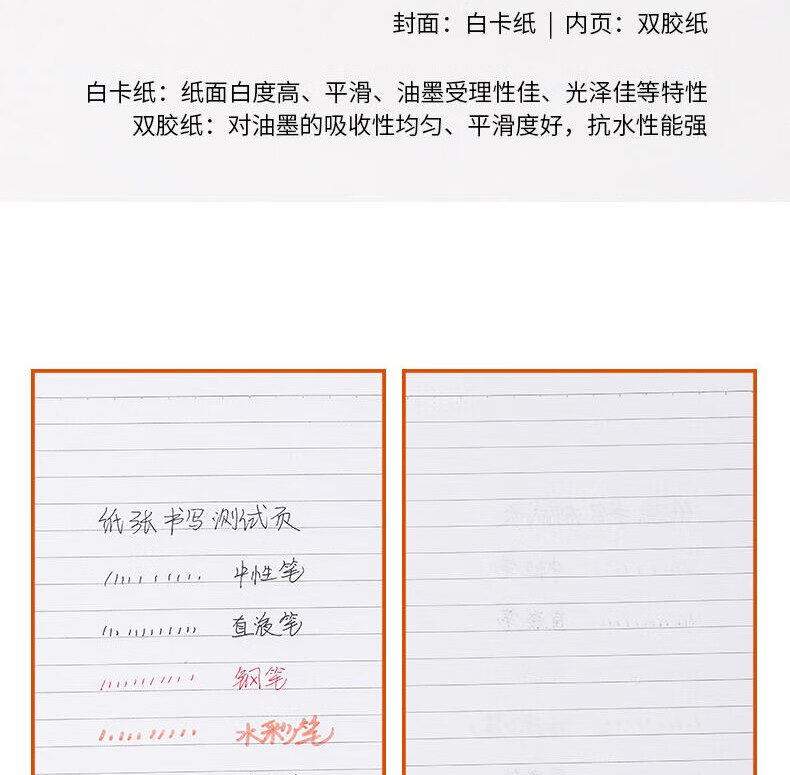 封面：白卡纸 | 内页：双胶纸
白卡纸：纸面白度高、平滑、油墨受理性佳、光泽佳等特性
双胶纸：对油墨的吸收性均匀、平滑度好，抗水性能强
纸张书写测试页
中性笔
直液笔
钢笔
水彩笔